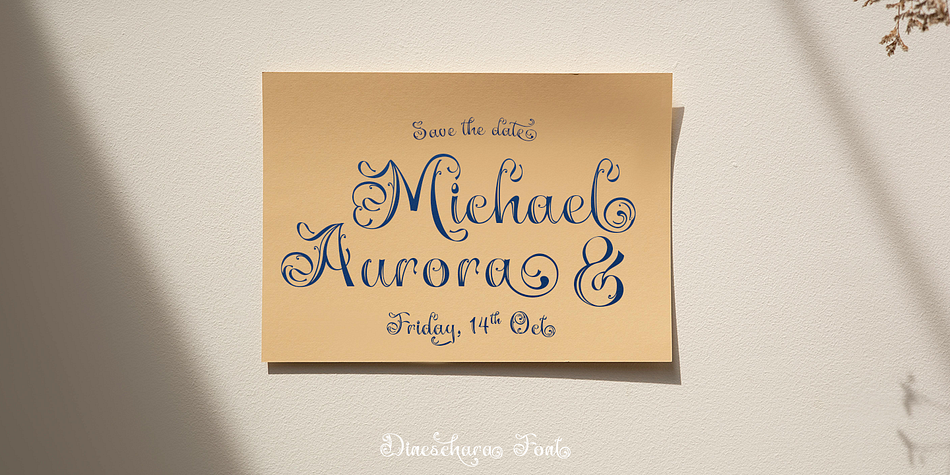 Save the date
Michael
Aurora &
Friday, 14th Oct
Dineschara Font